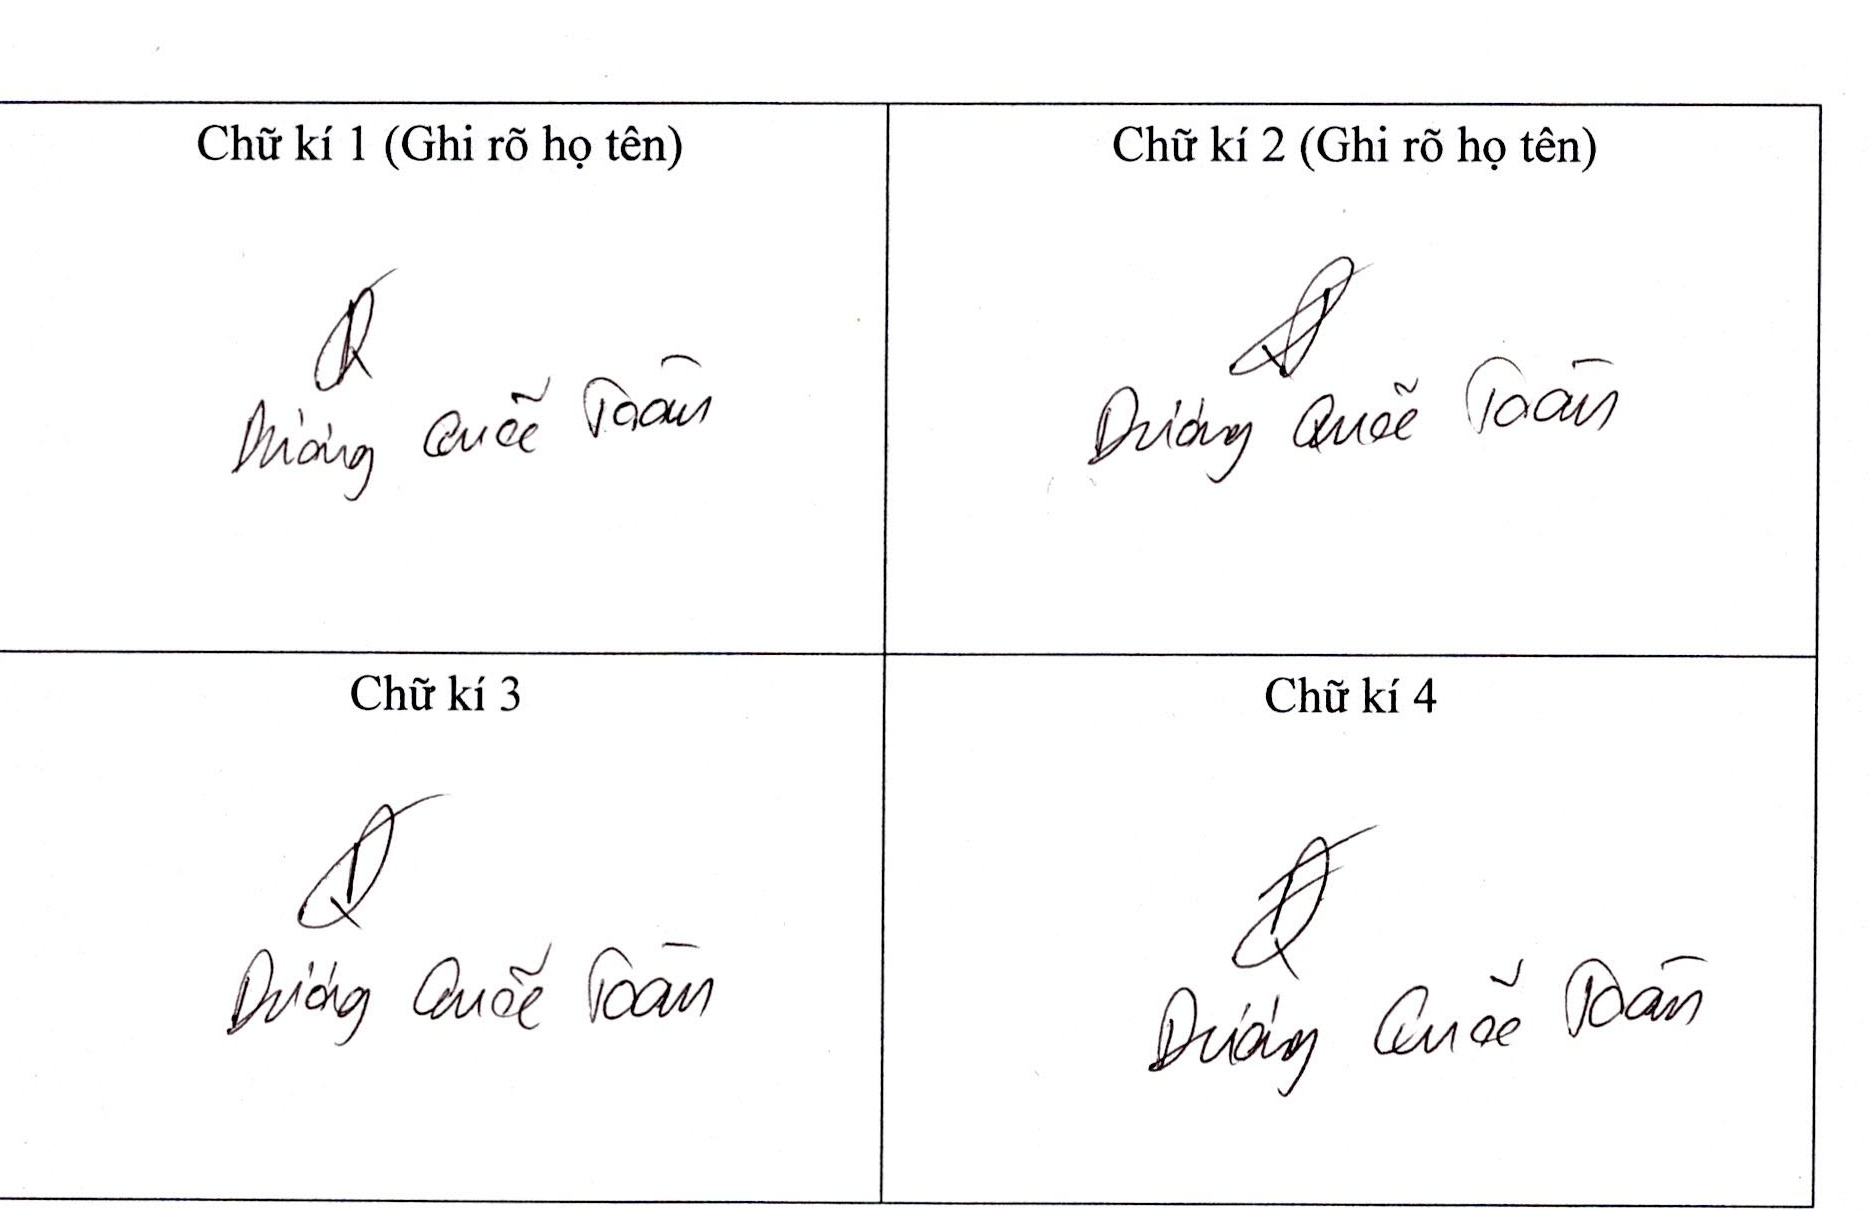 Chữ kí 1 (Ghi rõ họ tên)
Chữ kí 2 (Ghi rõ họ tên)
Dương Quốc Toàn
Dương Quốc Toàn
Chữ kí 3
Chữ kí 4
Dương Quốc Toàn
Dương Quốc Toàn